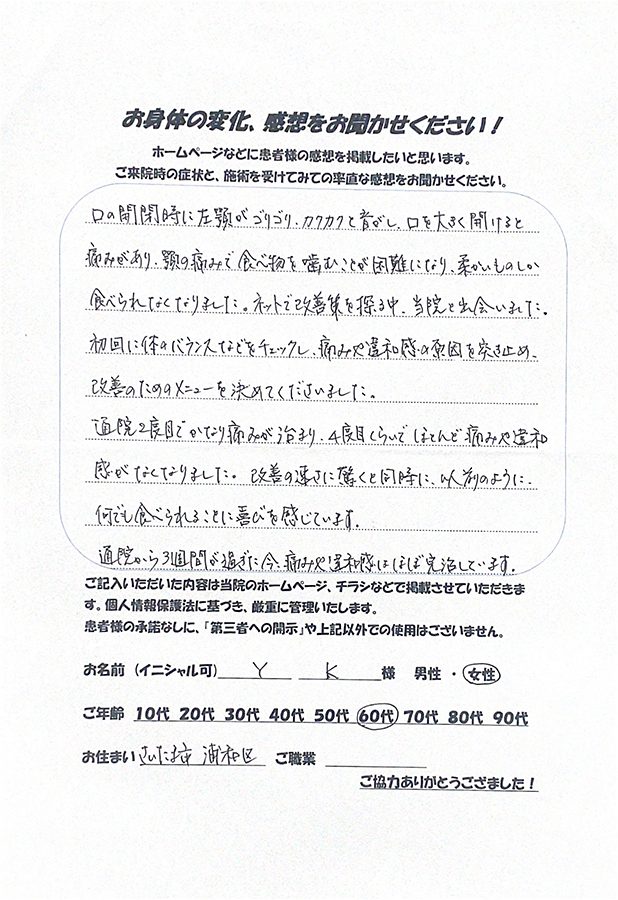 お身体の変化、感想をお聞かせください！
ホームページなどに患者様の感想を掲載したいと思います。
ご来院時の症状と、施術を受けてみての率直な感想をお聞かせください。
口の開閉時に左顎がゴリゴリ、カクカクと音がし、口を大きく開けると
痛みがあり、顎の痛みで食べ物を噛むことが困難になり、柔かいものしか
食べられなくなりました。ネットで改善策を探る中、当院と出会いました。
初回に体のバランスなどをチェックし、痛みや違和感の原因を突き止め、
改善のためのメニューを決めてくださいました。
通院2度目でかなり痛みが治まり、4度目くらいでほとんど痛みや違和
感がなくなりました。改善の速さに驚くと同時に、以前のように、
何でも食べられることに喜びを感じています。
通院から3週間が過ぎた今、痛みや違和感はほぼ完治しています。
ご記入いただいた内容は当院のホームページ、チラシなどで掲載させていただきま
す。個人情報保護法に基づき、厳重に管理いたします。
患者様の承諾なしに、「第三者への開示」や上記以外での使用はございません。
お名前（イニシャル可） Y K 様 男性 ・ 女性
ご年齢 10代 20代 30代 40代 50代 60代 70代 80代 90代
お住まい さいたま市 浦和区 ご職業
ご協力ありがとうござました！